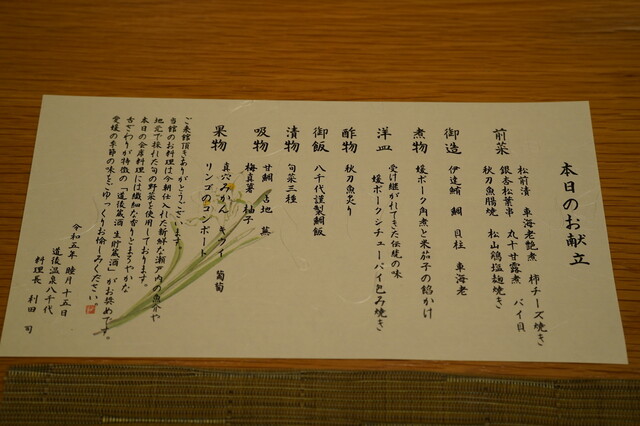 本日のお献立
前菜
松前漬 車海老艶煮 柿チーズ焼き
銀杏松葉串 丸十甘露煮 バイ貝
秋刀魚腸焼 松山鶏塩麹焼き
御造
伊達鮪 鯛 貝柱 車海老
煮物
媛ポーク角煮と米茄子の餡かけ
洋皿
受け継がれてきた伝統の味
媛ポークシチューパイ包み焼き
酢物
秋刀魚炙り
御飯
八千代謹製鯛飯
漬物
旬菜三種
吸物
甘鯛 占地 葉
梅真薯 柚子
果物
真穴みかん キウイ 葡萄
リンゴのコンポート
ご来館頂きありがとうございます。
当館のお料理は今朝仕入れた新鮮な瀬戸内の魚介や
地元で採れた旬の野菜を使用しております。
本日の会席料理には繊細な香りとまろやかな
舌ざわりが特徴の「道後蔵酒 生貯蔵酒」がお奨めです。
愛媛の季節の味をごゆっくりお愉しみください
令和五年 睦月十五日
道後温泉八千代
料理長 利田 司